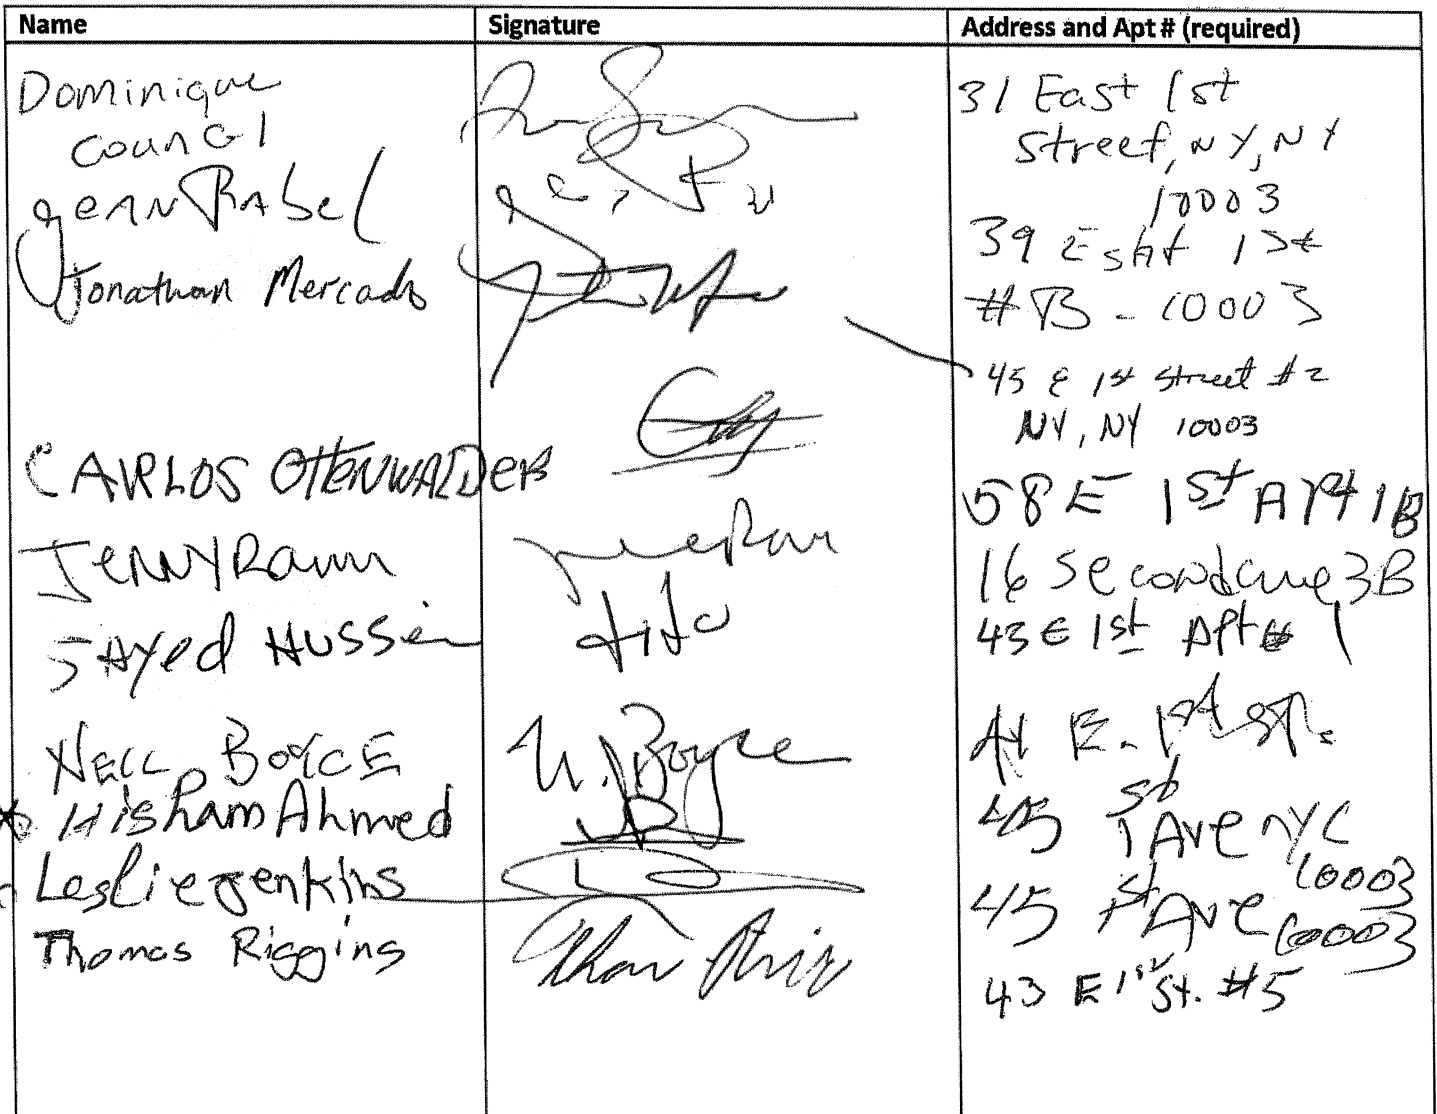 Name Signature Address and Apt # (required)
Dominique
Council
31 East 1st
Street, NY, NY
10003
Jean Rabel
39 East 1st
#B - 10003
Jonathan Mercado
45 E 1st Street #2
NY, NY 10003
CARLOS OTTENWALDER
58 E 1st Apt 1B
Jenny Raum
16 Second ave 3B
Sayed Hussein
43 E 1st Apt # 1
Neil Boyce N. Boyce
41 E. 1st St.
Hisham Ahmed
45 1st Ave NYC
10003
Leslie Jenkins
45 1st Ave 10003
Thomas Riggins
43 E 1st St. #5